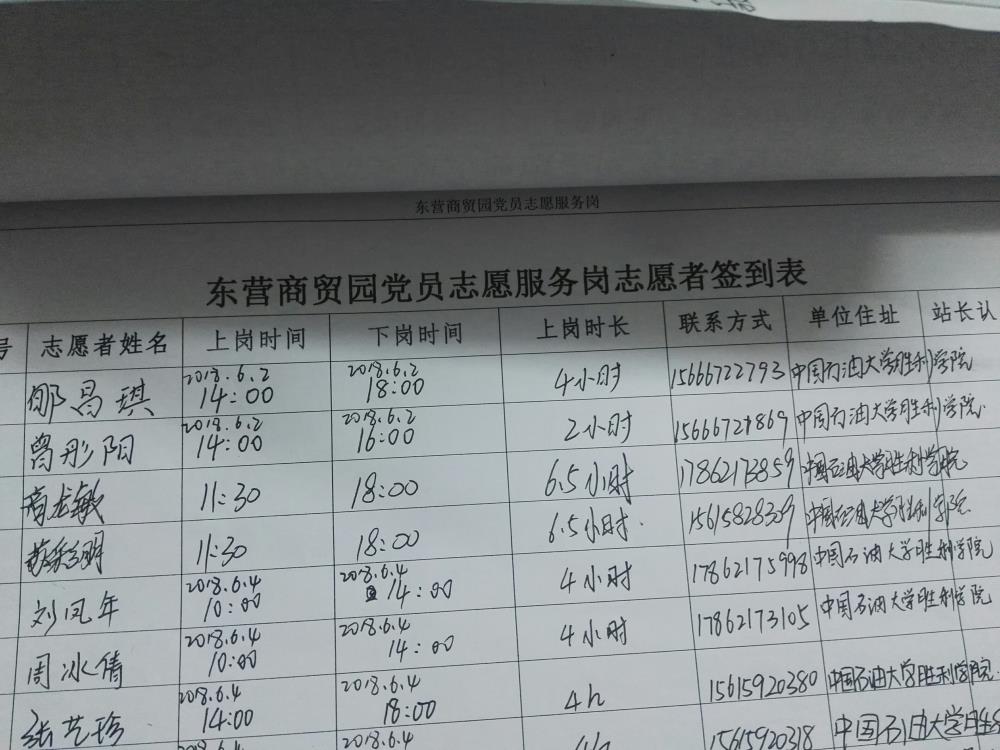 东营商贸园党员志愿服务岗
东营商贸园党员志愿服务岗志愿者签到表
号 志愿者姓名 上岗时间 下岗时间 上岗时长 联系方式 单位住址 站长认
邹昌琪 2018.6.2 14:00 2018.6.2 18:00 4小时 15666722793 中国石油大学胜利学院
曾彤阳 2018.6.2 14:00 2018.6.2 16:00 2小时 15666721869 中国石油大学胜利学院
商龙敏 11:30 18:00 6.5小时 17862173859 中国石油大学胜利学院
11:30 18:00 6.5小时. 15615828309 中国石油大学胜利学院
刘凤年 2018.6.4 10:00 2018.6.4 14:00 4小时 17862175998 中国石油大学胜利学院
周冰倩 2018.6.4 10:00 2018.6.4 14:00 4小时 17862173105 中国石油大学胜利学院
张艺珍 2018.6.4 14:00 2018.6.4 18:00 4h 15615920380 中国石油大学胜利学院
2018.6.4 2018.6.4 4h 15615920318 中国石油大学胜利学